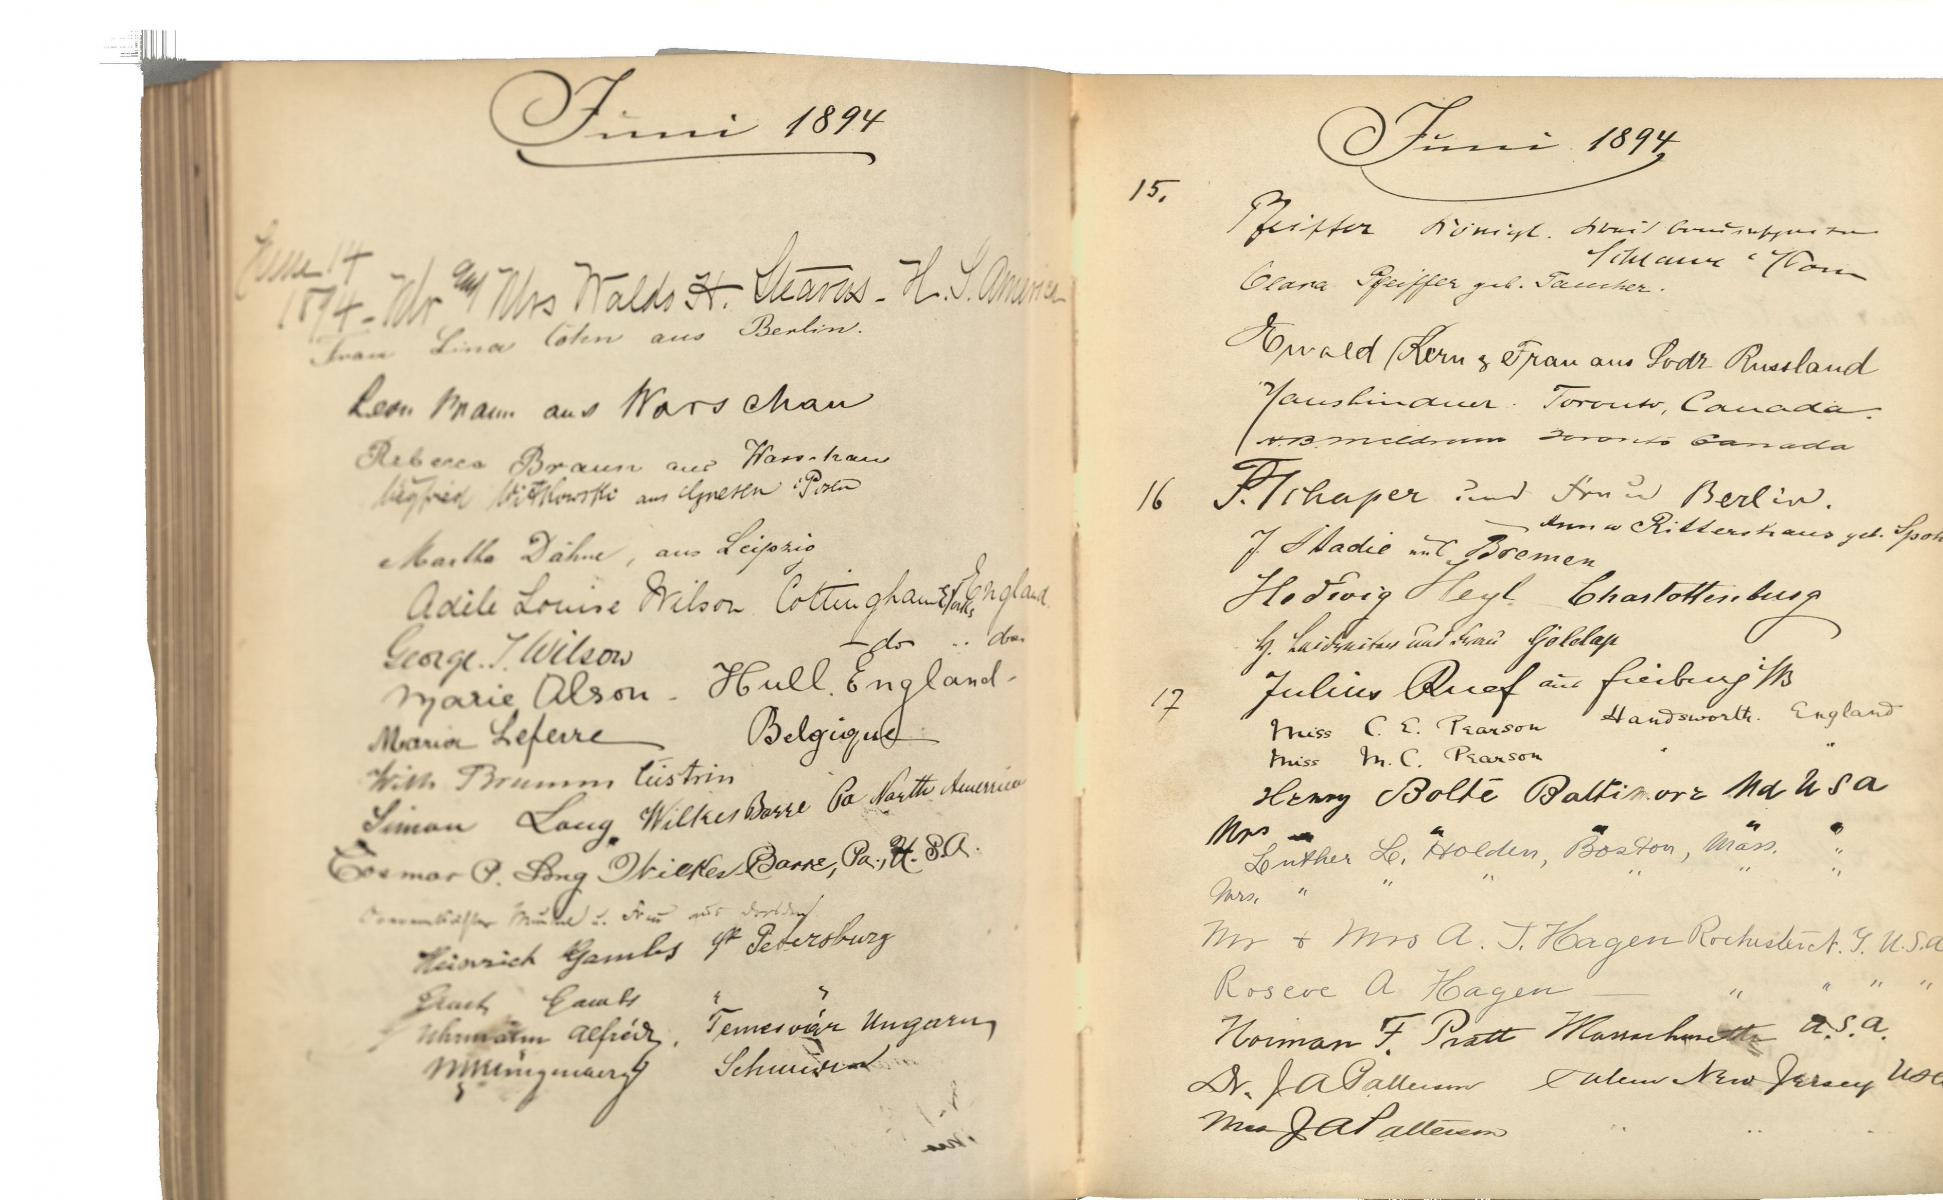 Juni 1894
June 14
1894 - Mr and Mrs Waldo H. Stearns - U. S. America
Frau Lina Cohn aus Berlin.
Leon Braun aus Warschau
Rebecca Braun aus Warschau
Siegfried Witkowski aus Gnesen Posen
Martha Dähne, aus Leipzig
Adele Louise Wilson Cottingham E. Yorks England.
George. T. Wilson - do .. do.
Marie Alson - Hull. England -
Maria Leferre Belgique
With Brumm Cüstrin
Simon Long Wilkes Barre Pa North America
Cosmar P. Long Wilkes Barre, Pa., U.S.A.
u. Frau aus
Heinrich Gambs St Petersburg
Gambs " "
Uhrmann Alfréd, Temesvár Ungarn
Schweden
Juni 1894
15.
Pfeiffer Königl.
Clara Pfeiffer geb. Tauscher.
Ewald Kern & Frau aus Lodz Russland
Toronto, Canada.
Meldrum Toronto Canada
16 F. Schaper und Frau Berlin.
Anna Rittershaus geb. Spohr
J Stadie aus Bremen
Hedwig Heyl Charlottenburg
und Frau Goldap
17 Julius Ruef aus Freiburg i/B
Miss C. E. Pearson Handsworth. England
Miss M. C. Pearson " "
Henry Bolte Baltimore Md U S A
Mrs " " " " "
Luther L. Holden, Boston, Mass. "
Mrs. " " " " " "
Mr & Mrs A. T. Hagen Rochester N. Y. U.S.A
Roscoe A Hagen — " " " "
Norman F. Pratt Massachusetts U.S.A.
Dr. J A Patterson Salem New Jersey USA
Mrs J A Patterson " " "